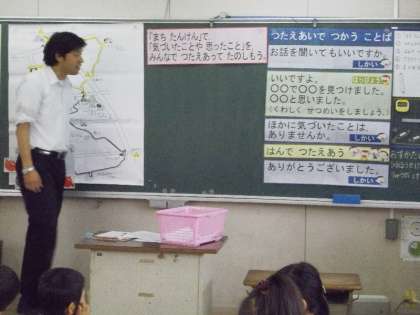 「まち たんけん」で、
「気づいたことや 思ったこと」を
みんなで つたえあって たのしもう。
つたえあいで つかう ことば
お話を聞いてもいいですか。
しかい
はっぴょう
いいですよ。
〇〇で〇〇を見つけました。
〇〇と思いました。
(くわしく せつめいをしましょう。)
ほかに気づいたことは
ありませんか。
しかい
はんで つたえあう
ありがとうございました。
しかい